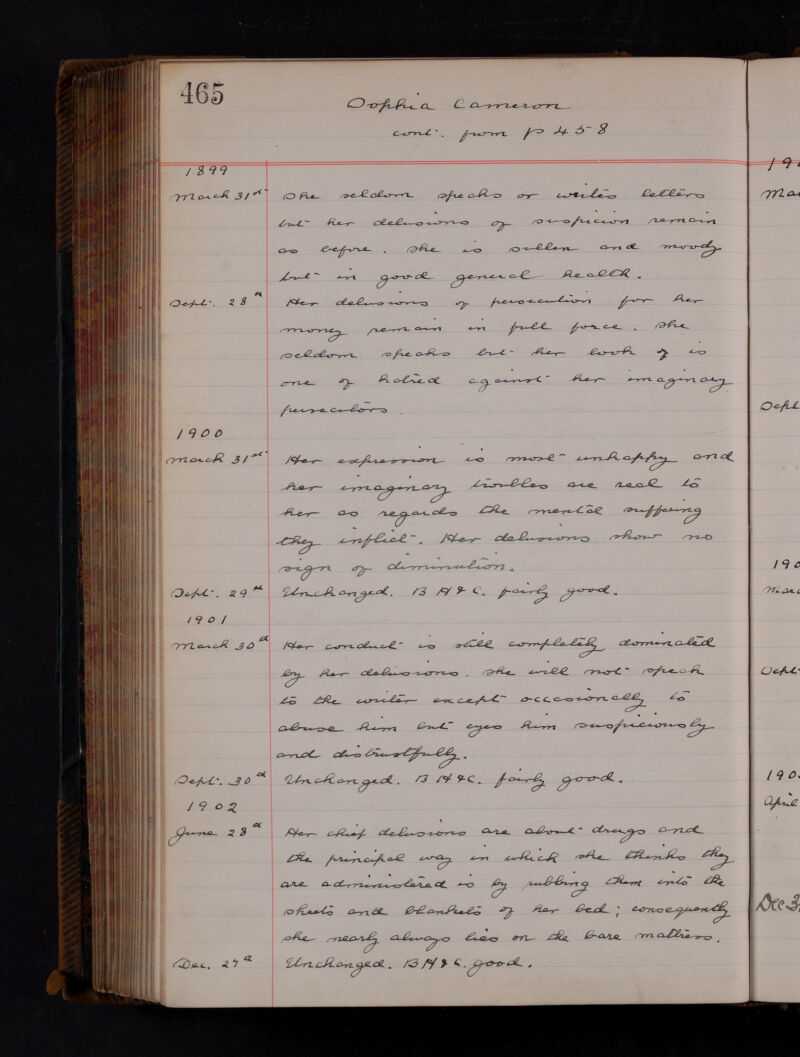 465
Sophia Cameron
cont. from p 458
1899
March 31st She seldom speaks or writes letters
but her delusions of suspicion remain
as before. She is sullen and moody
but in good general health.
Sept. 28th Her delusions of persecution for her
money remain in full force. She
seldom speaks but her look is
one of hatred against her imaginary
persecutors.
1900
March 31st Her expression is most unhappy and
her imaginary troubles are real to
her as regards the mental suffering
they inflict. Her delusions show no
sign of diminution.
Sept. 29th Unchanged. B H & C. fairly good.
1901
March 30th Her conduct is still completely dominated
by her delusions. She will not speak
to the writer except occasionally to
abuse him but eyes him suspiciously
and distrustfully.
Sept. 30th Unchanged. B H & C. fairly good.
1902
June 28th Her chief delusions are about drugs and
the principal way in which she thinks they
are administered is by rubbing them into the
sheets and blankets of her bed; consequently
she nearly always lies on the bare mattress.
Dec. 27th Unchanged. B H & C. good.
190
Mar
Sept
190
Mar
Sept
190
April
Dec 3